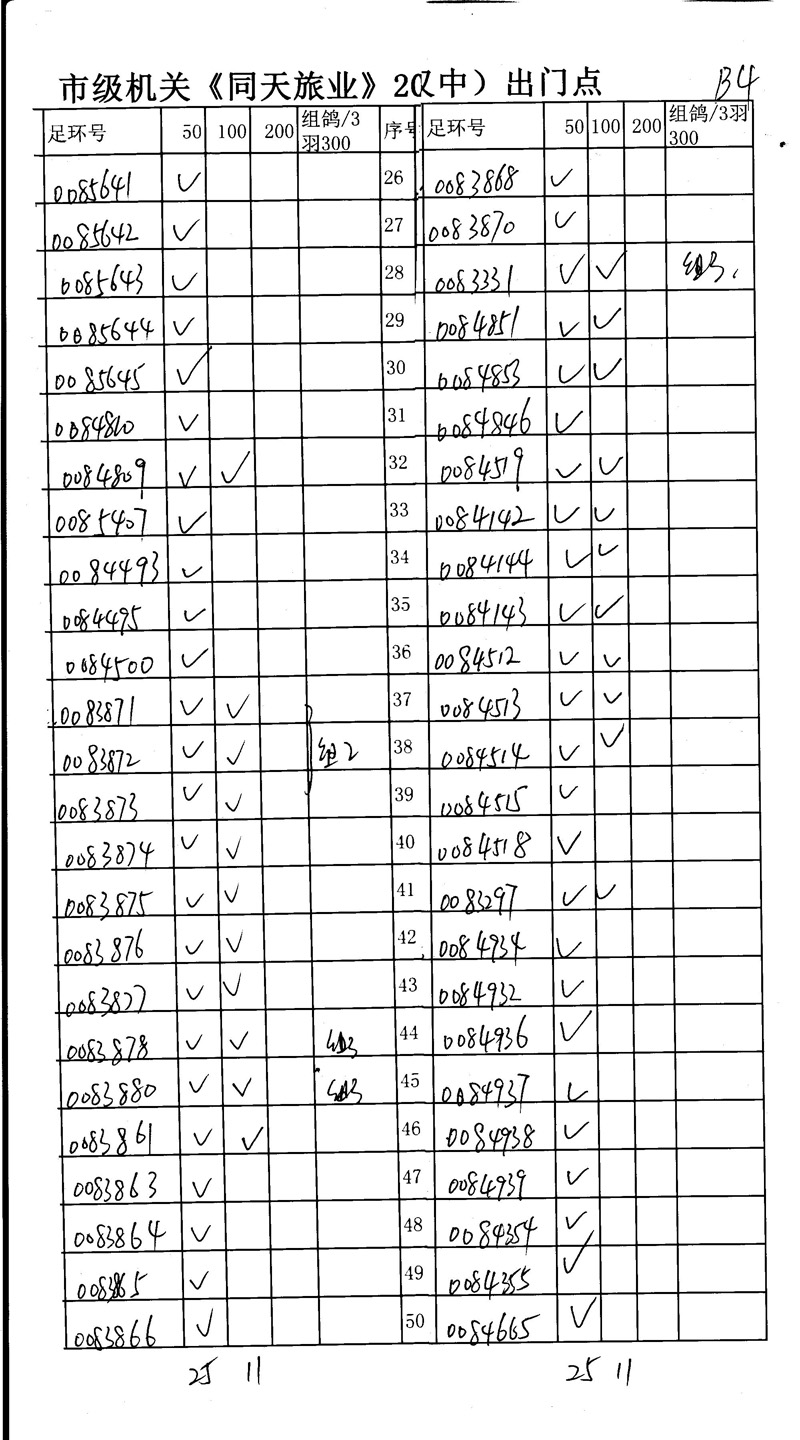 市级机关《同天旅业》20 中）出门点 B4
足环号 50 100 200 组鸽/3羽300 序号 足环号 50 100 200 组鸽/3羽300
0085641 ✓ 26 0083868 ✓
0085642 ✓ 27 0083870 ✓
0085643 ✓ 28 0083331 ✓ ✓ 组3
0085644 ✓ 29 0084851 ✓ ✓
0085645 ✓ 30 0084853 ✓ ✓
0084810 ✓ 31 0084846 ✓
0084809 ✓ ✓ 32 0084519 ✓ ✓
0085407 ✓ 33 0084142 ✓ ✓
0084493 ✓ 34 0084144 ✓ ✓
0084495 ✓ 35 0084143 ✓ ✓
0084500 ✓ 36 0084512 ✓ ✓
0083871 ✓ ✓ 37 0084513 ✓ ✓
0083872 ✓ ✓ 组2 38 0084514 ✓ ✓
0083873 ✓ ✓ 39 0084515 ✓
0083874 ✓ ✓ 40 0084518 ✓
0083875 ✓ ✓ 41 0083297 ✓ ✓
0083876 ✓ ✓ 42 0084934 ✓
0083877 ✓ ✓ 43 0084932 ✓
0083878 ✓ ✓ 组3 44 0084936 ✓
0083880 ✓ ✓ 组3 45 0084937 ✓
0083861 ✓ ✓ 46 0084938 ✓
0083863 ✓ 47 0084939 ✓
0083864 ✓ 48 0084354 ✓
0083865 ✓ 49 0084355 ✓
0083866 ✓ 50 0084665 ✓
25 11 25 11